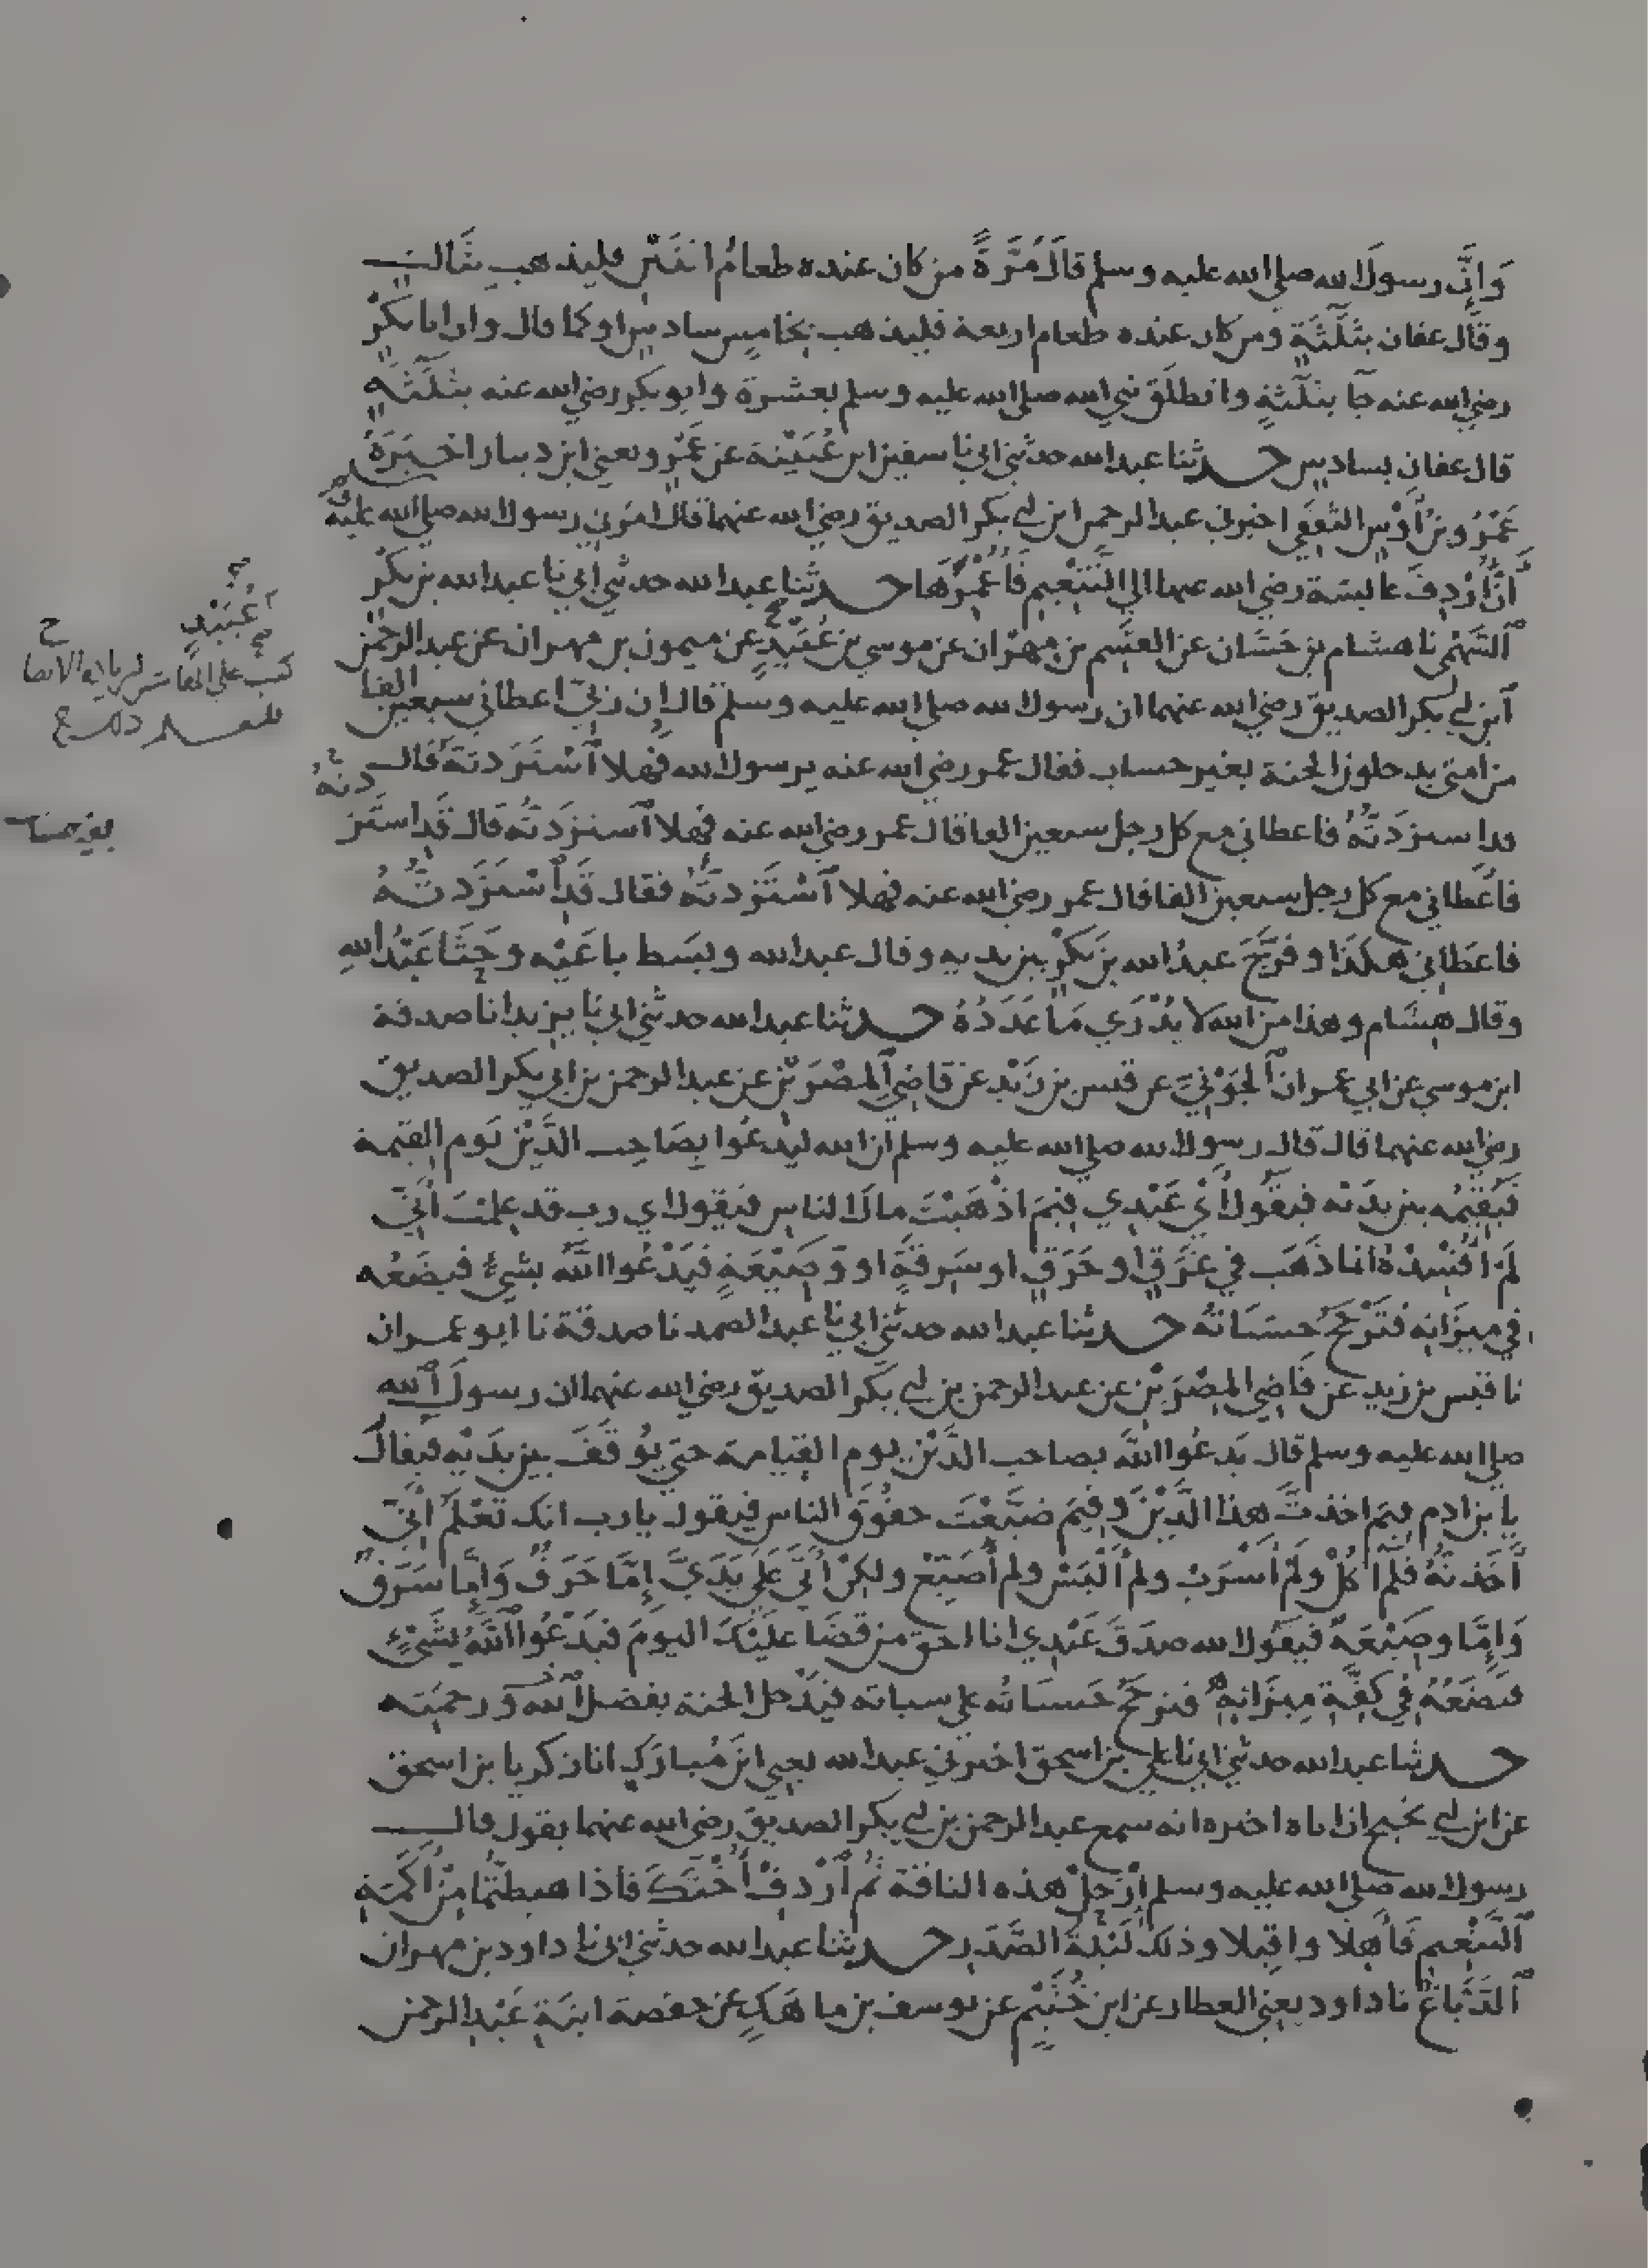 وَإِنَّ رسولَ الله صلى الله عليه وسلم قالَ مَرَّةً من كان عنده طعامُ اثنَيْنِ فليذهب بثَالثٍ
وقال عفان بثَلٰثَةٍ ومن كان عنده طعام اربعة فليذهب بخامسٍ سادسٍ او كما قال وان ابا بَكْرٍ
رضي الله عنه جآ بثلٰثةٍ وانطلَق نبي الله صلى الله عليه وسلم بعشرة وابو بكر رضي الله عنه بثلٰثَةٍ
قال عفان بسادسٍ حدثنا عبد الله حدثني ابي نا سفين ابن عُيَيْنة عن عَمْرو يعني ابن دينار اخبَرَهُ
عَمْرُو بنُ أَوْسٍ الثقفي اخبرني عبد الرحمن ابن ابي بكر الصديق رضي الله عنهما قال امَرَني رسول الله صلى الله عليه
أنْ أُرْدِفَ عائشة رضي الله عنها الى التَّنْعِيمِ فَأُعْمِرَهَا حدثنا عبد الله حدثني ابي نا عبد الله بن بَكْرٍ
السَّهْمي نا هشام بن حَسَّان عن القسِم بن مِهْران عن موسي بن عُبَيْدٍ عن ميمون بن مهران عن عبد الرحمن
ابن ابي بكر الصديق رضي الله عنهما ان رسول الله صلى الله عليه وسلم قال ان ربّي اعطاني سبعين الفا
من امتي يدخلون الجنة بغير حساب فقال عمر رضي الله عنه يرسول الله فهلا اسْتَزَدتَهُ قال
قد استزَدتُهُ فاعطاني مع كل رجل سبعين الفا قال عمر رضي الله عنه فهلا استزَدتَهُ قال قَدِ استَزَ
دتُهُ
فاعْطاني مع كل رجل سبعين الفا قال عمر رضي الله عنه فهلا اسْتَزدتَهُ فقال قَدِ اسْتَزَدتُهُ
فاعطَاني هكَذَا وفَرَّجَ عبدُ الله بنُ بَكْرٍ بين يديه وقال عبد الله وبسَط باعَيْه وحَثَا عَبْدُ اللهِ
وقال هِشَام وهذا من الله لا يُدْرَي مَا عَدَدُهُ حدثنا عبد الله حدثني ابي نا يزيد انا صدقة
ابن موسي عن ابي عمران الجَوْنيِّ عن قيس بن زَيْد عن قاضِي المِصْرَيْن عن عبد الرحمن بن ابي بكر الصديق
رضي الله عنهما قال قال رسول الله صلى الله عليه وسلم ان الله ليدعُوا بصَاحبِ الدَّيْن يَوم القِيمة
فيُقِيمُه بين يدَيْه فيقُولُ أيْ عَبْدِي فيمَ اذْهَبْتَ مالَ الناسِ فيَقول اي رب قد علمتَ أنِّي
لَم افْسِدْهُ انما ذَهَب في غَرَقٍ او حَرَقٍ او سَرِقَةٍ او وَضِيْعَةٍ فيَدْعُوا اللَّهُ بشيءٍ فيضَعُه
في ميزَانِه فتَرْجَحُ حسَنَاتُه حدثنا عبد الله حدثني ابي نا عبد الصمد نا صدقة نا ابو عمران
نا قيس بن زيد عن قاضِي المِصْرَيْن عن عبد الرحمن بن ابي بكر الصديق رضي الله عنهما ان رسولَ اللهِ
صلى الله عليه وسلم قال يَدعُوا اللهُ بصاحب الدَّيْن يوم القِيامة حتي يُوقَفَ بين يدَيْه فيقالُ
يا بن ادم فيمَ اخذتَ هذا الدَّيْنَ وفِيمَ ضيَّعْتَ حقُوقَ الناسِ فيقول يا رب انك تعْلَمُ أَنِّي
أخَذتُهُ فلَمْ آكُلْ ولَمْ اَشْرَبْ ولم أَلْبَسْ ولم أُضَيِّعْ ولكِنْ أَتَي عَلَي يَدَيَّ إِمَّا حَرَقٌ وَإِمَّا سَرَقٌ
وَإِمَّا وضِيْعَةٌ فيَقُول الله صدَقَ عَبْدِي انا احق من قَضَا عَلَيْكَ اليومَ فيَدْعُوا اللَّهُ بشَيْءٍ
فيَضَعُهُ في كِفَّةِ مِيزَانِهِ فترجَحُ حَسنَاتُه علي سياته فيَدْخل الجنة بفضل الله ورحمتِه
حدثنا عبد الله حدثني ابي نا علي بن اسحق اخبرني عبد الله يعني ابنَ مُبارَكٍ انا زكريا بن اسحق
عن ابن ابي نجيح ان اباه اخبره انه سمع عبد الرحمن بن ابي بكر الصديق رضي الله عنهما يقول قال
رسول الله صلى الله عليه وسلم ارْحَلْ هذه الناقة ثُم أَرْدِفْ أُخْتَكَ فاذا هبطتُمَا مِنْ أَكَمَةِ
التَّنْعِيم فَأَهِلَّا واقبِلا وذلك لَيْلةَ الصَّدَر حدثنا عبد الله حدثني ابي نا داود بن مهران
الدَّبَّاغُ نا داود يعني العطار عن ابن خُثَيْمٍ عن يوسف بن ماهَكٍ عن حفصة ابنَةِ عَبْدِ الرحمن
عُبَيْدٍ
كتب علي الحاشية